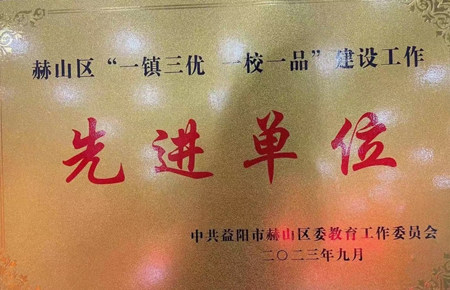 赫山区“一镇三优 一校一品”建设工作
先进单位
中共益阳市赫山区委教育工作委员会
二〇二三年九月